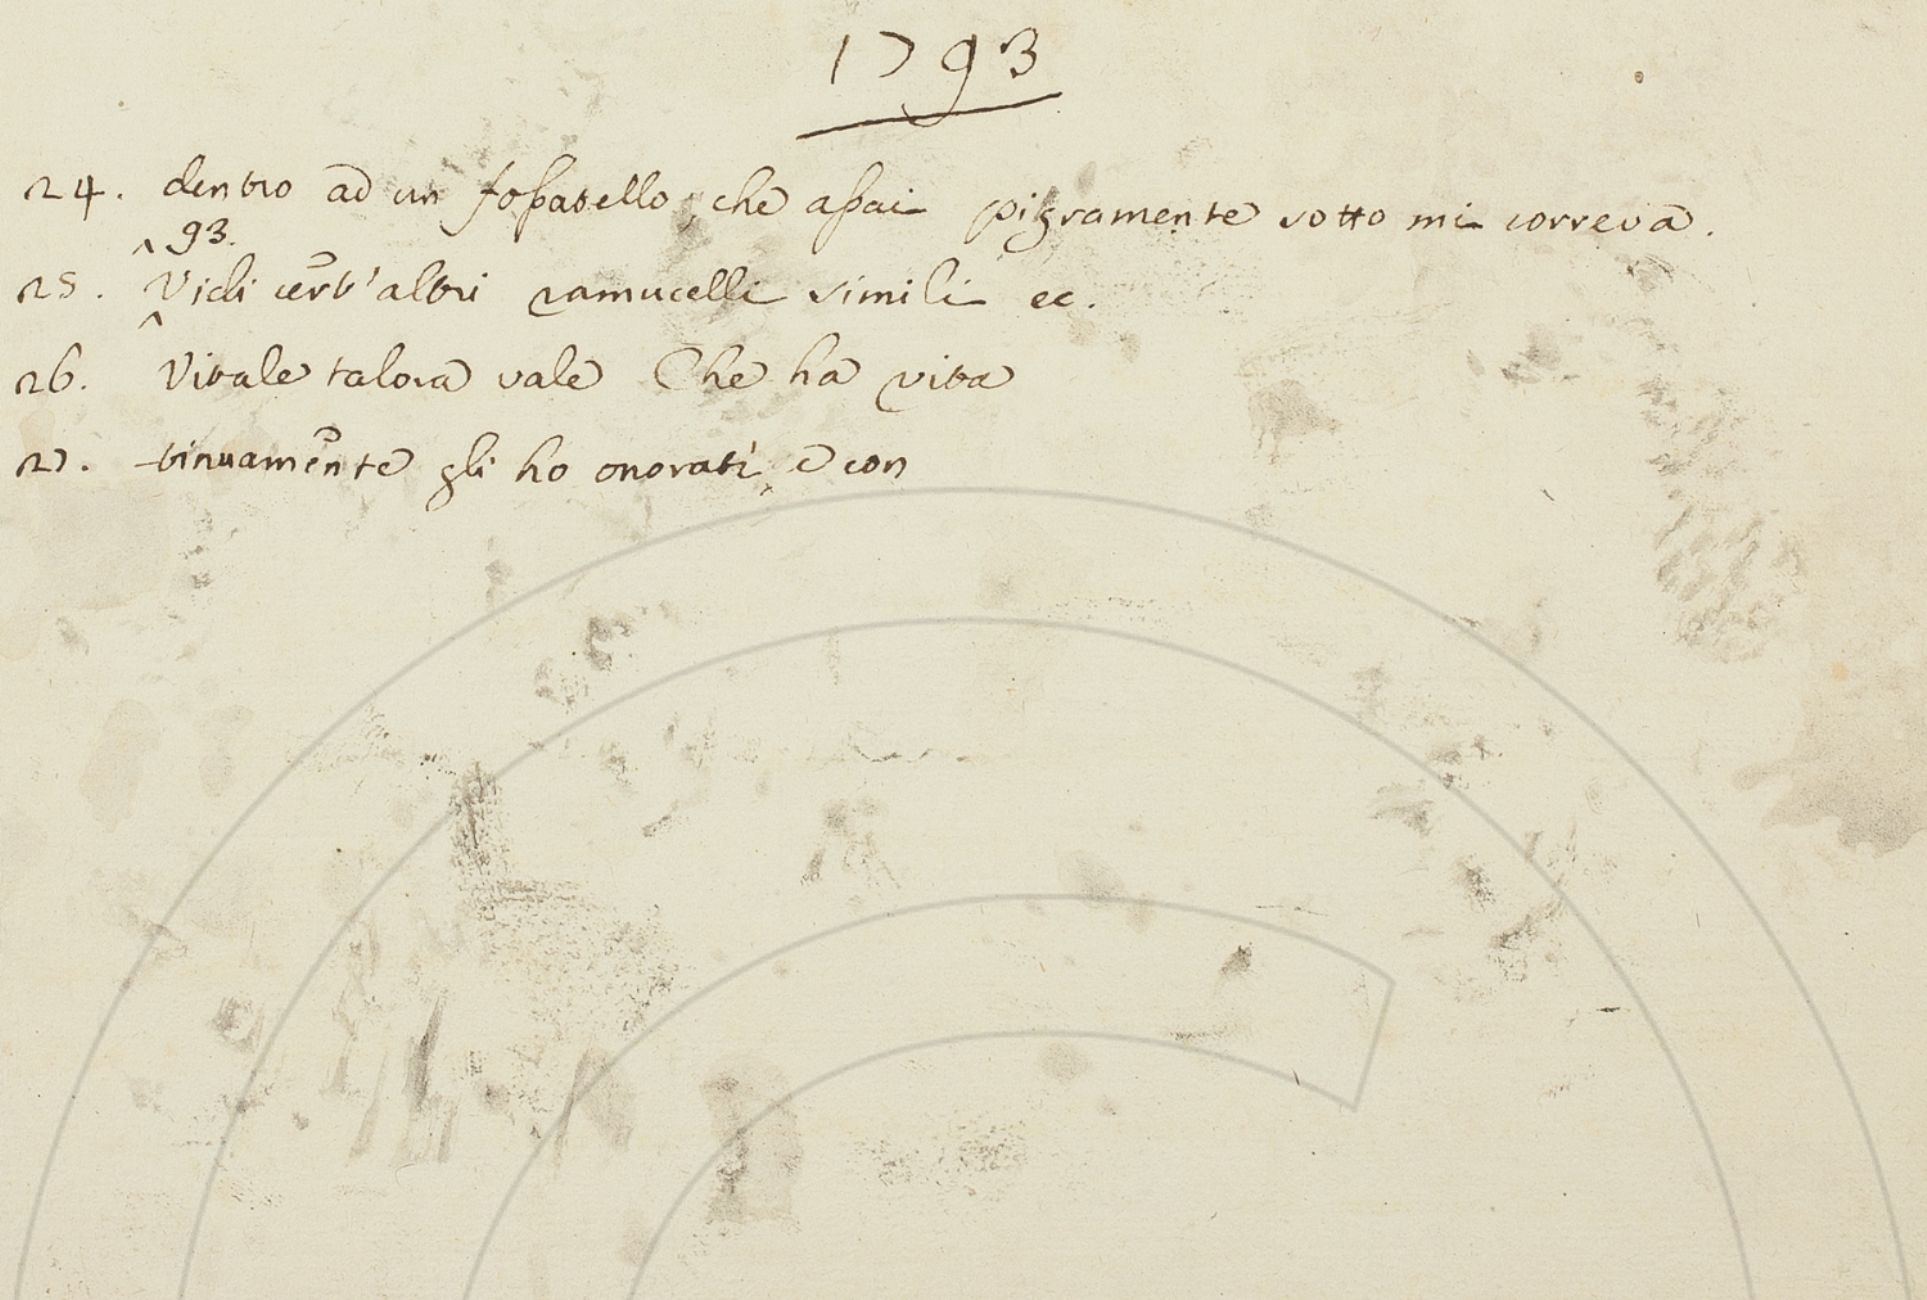 1793
24. dentro ad un fossatello, che assai pigramente sotto mi correva.
^ 93.
25. Vidi cert'altri ramucelli simili ec.
^
26. Vitale talora vale Che ha vita
27. tinuamente gli ho onorati, e con